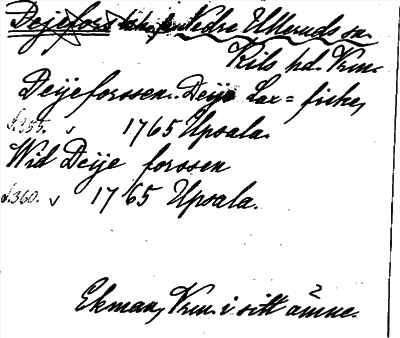 Dejefors Nedre Ulleruds sn.
Kils hd. Vrm.
Deijeforssen. Deije Lax= fiske,
s.355. v 1765 Upsala.
Wid Deije forssen
s.360. v 1765 Upsala.
Ekman, Vrm. i sitt ämne. 2